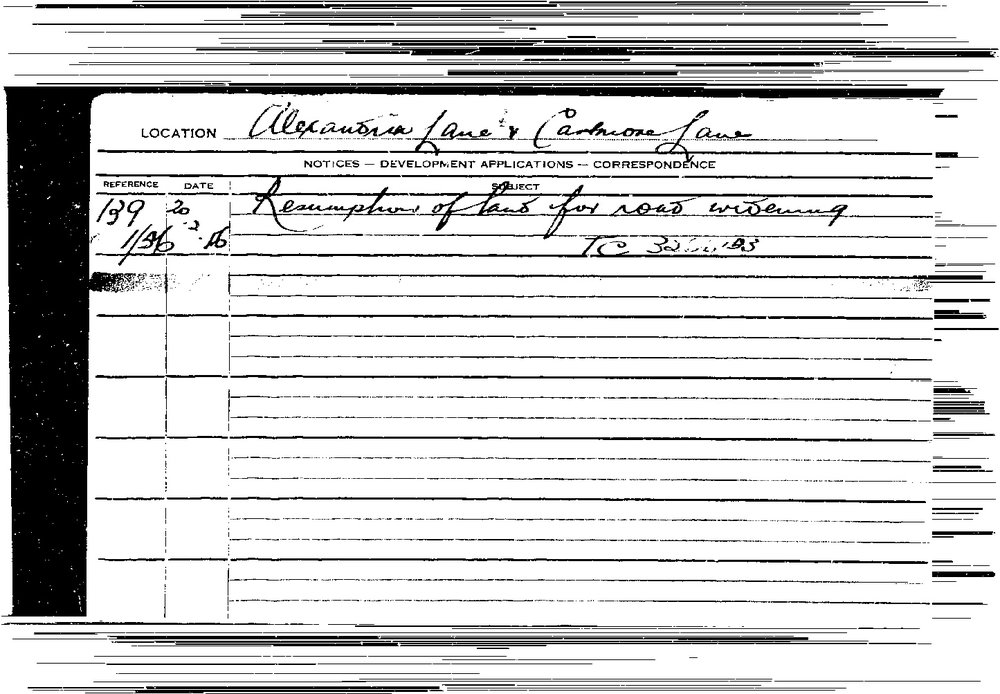 LOCATION Alexandria Lane & Carlmore Lane
NOTICES — DEVELOPMENT APPLICATIONS — CORRESPONDENCE
REFERENCE DATE SUBJECT
139 20 Resumption of land for road widening
1/56 -2-56
TC